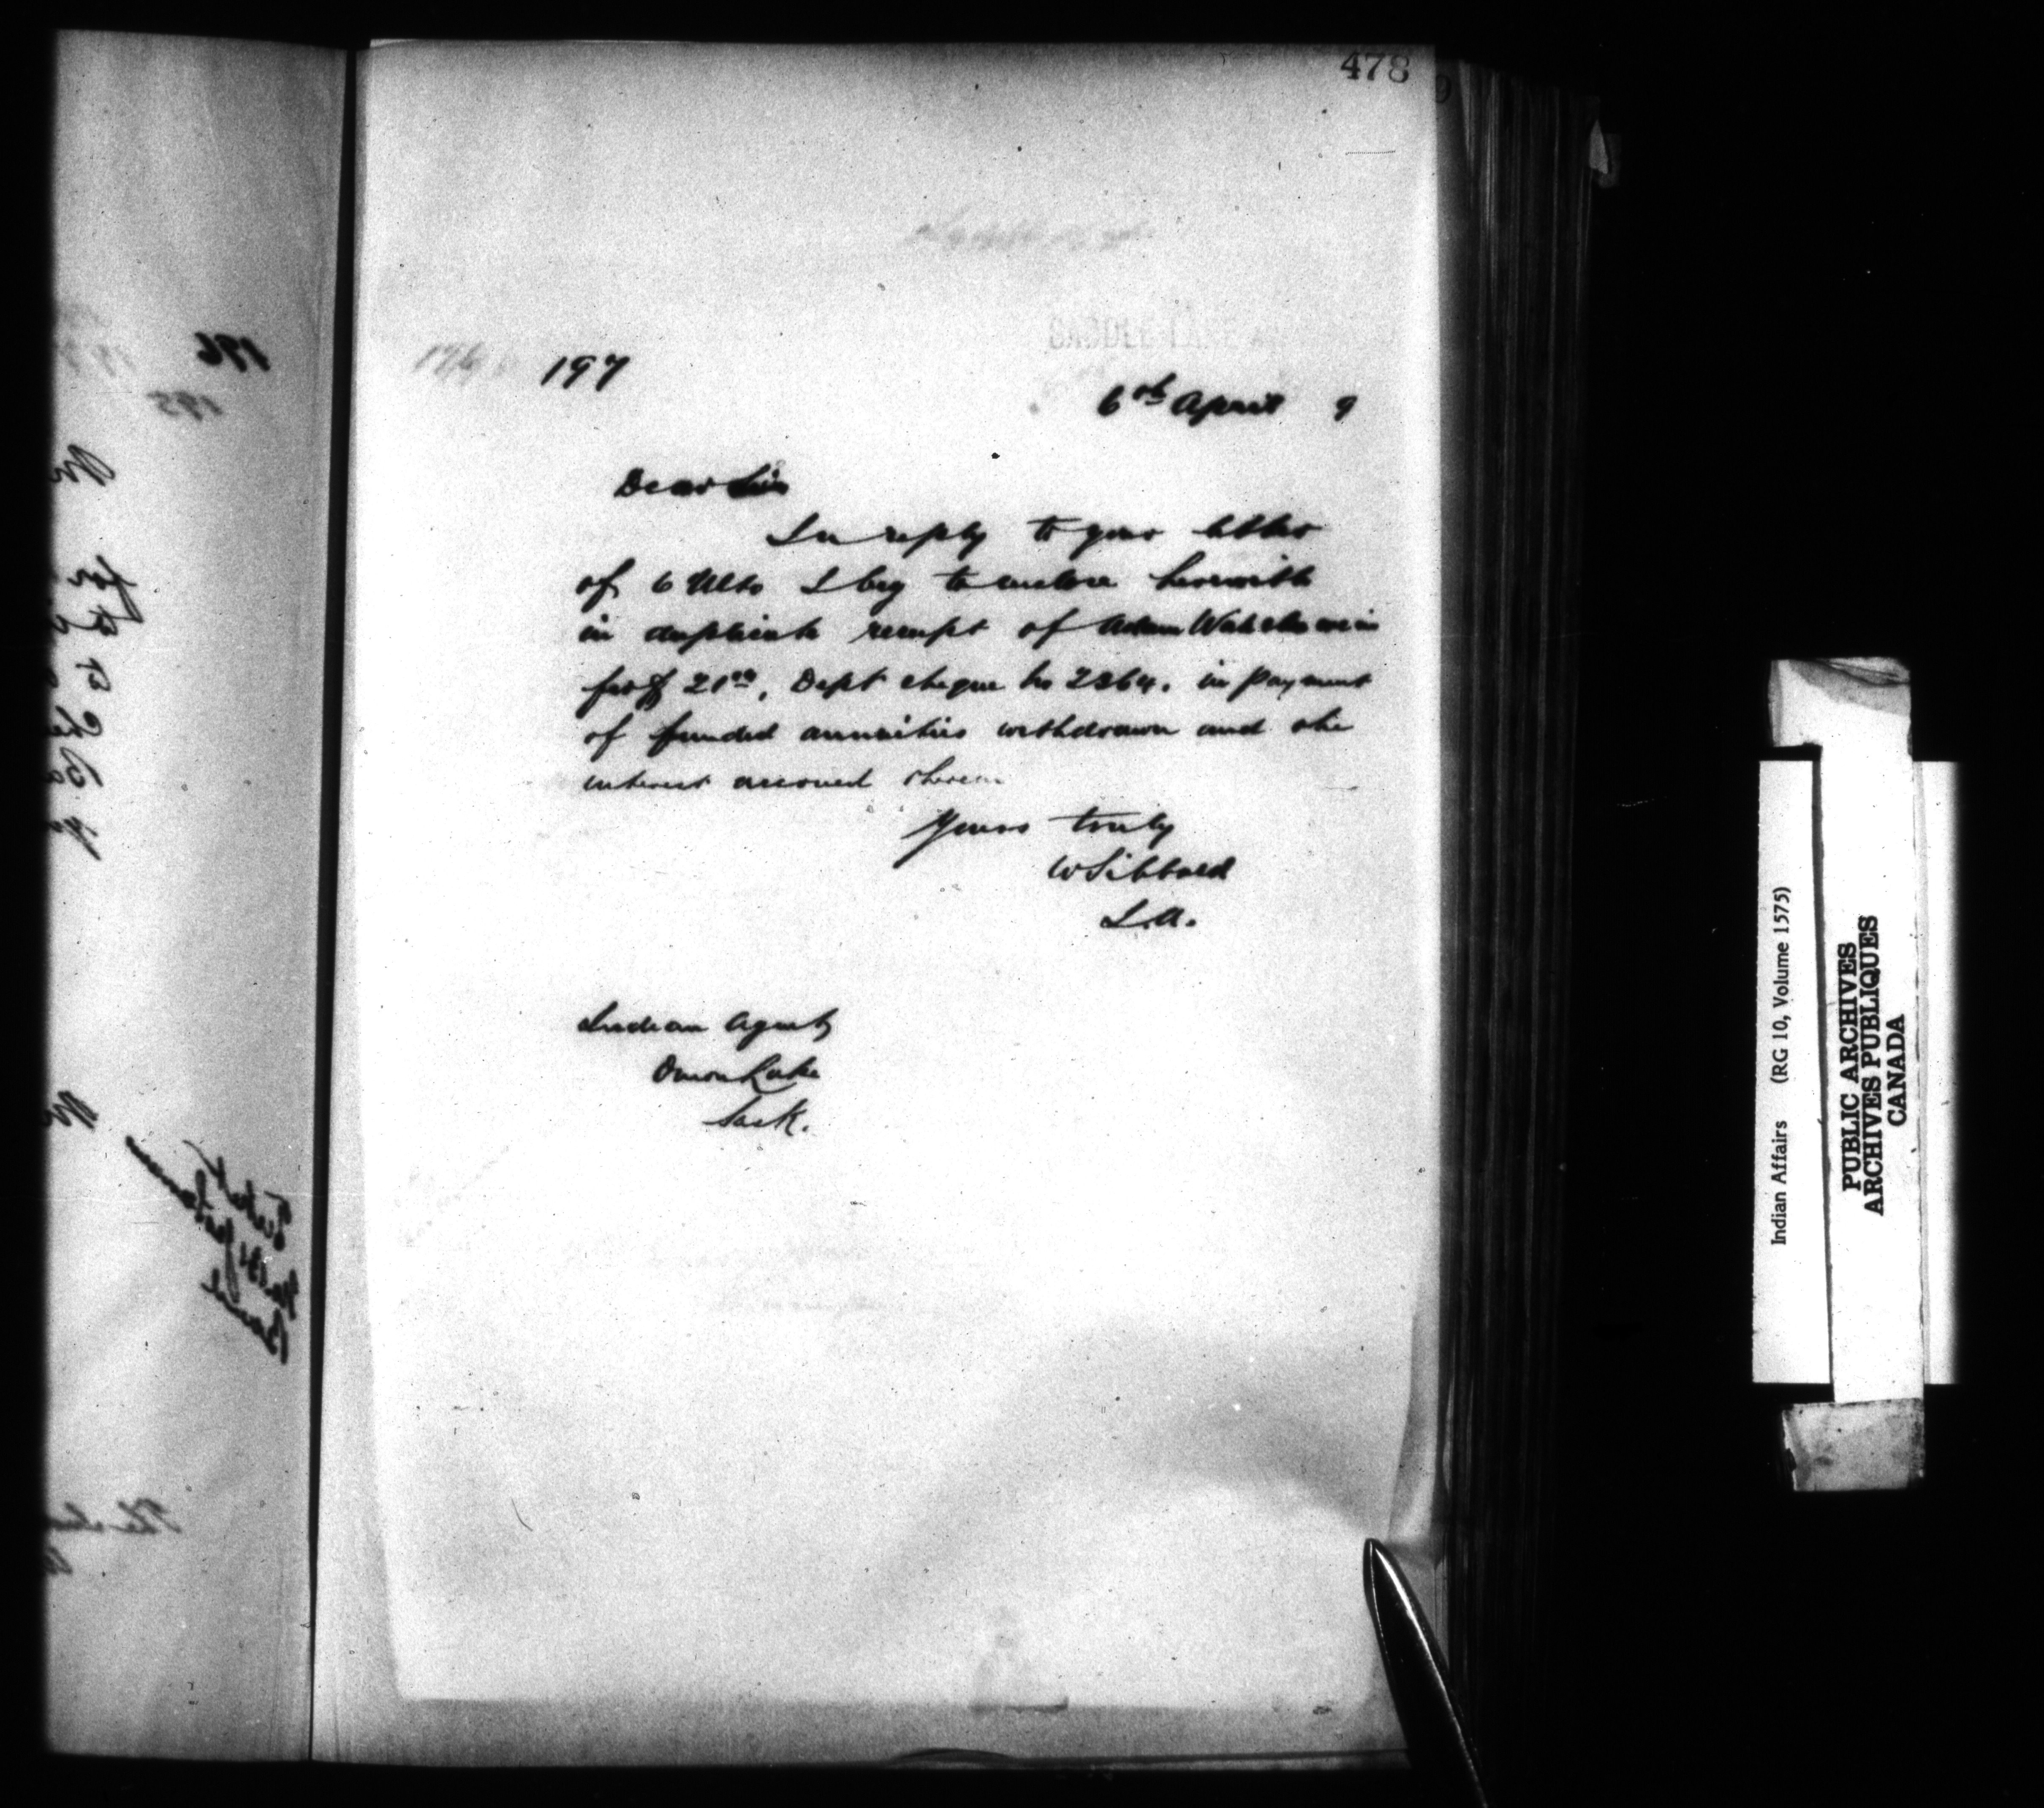 478
SADDLE LAKE
197
6th April 9
Dear Sir
In reply to your letter
of 6 Ulto I beg to enclose herewith
in duplicate receipt of Adam
for $ 21.00, Dept cheque No 2364. in payment
of funded annuities withdrawn and the
interest accrued thereon
Yours truly
W Sibbald
I.A.
Indian Agent
Onion Lake
Sask.
196
195
Indian Affairs (RG 10, Volume 1575)
PUBLIC ARCHIVES
ARCHIVES PUBLIQUES
CANADA